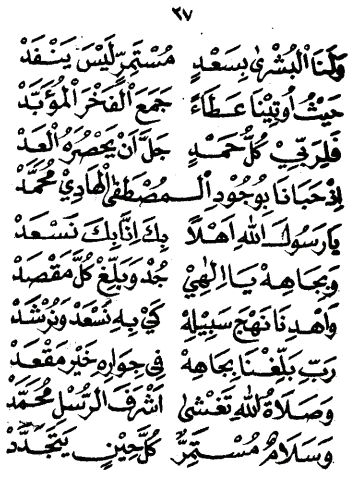 ٢٧
وَلَنَا الْبُشْرٰى بِسَعْدٍ مُسْتَمِرٍّ لَيْسَ يَنْفَدْ
حَيْثُ اُوتِيْنَا عَطَاءً جَمَعَ الْفَخْرَ الْمُؤَبَّدْ
فَلِرَبِّيْ كُلُّ حَمْدٍ جَلَّ اَنْ يَحْصُرَهُ الْعَدْ
اِذْ حَبَانَا بِوُجُوْدِ الْمُصْطَفٰى الْهَادِيْ مُحَمَّدْ
يَارَسُوْلَ اللهِ اَهْلًا بِكَ اِنَّا بِكَ نَسْعَدْ
وَبِجَاهِهْ يَا اِلٰهِيْ جُدْ وَبَلِّغْ كُلَّ مَقْصَدْ
وَاهْدِنَا نَهْجَ سَبِيْلِهْ كَيْ بِهِ نُسْعَدْ وَنُرْشَدْ
رَبِّ بَلِّغْنَا بِجَاهِهْ فِي جِوَارِهْ خَيْرَ مَقْعَدْ
وَصَلَاةُ اللهِ تَغْشٰى اَشْرَفَ الرُّسْلِ مُحَمَّدْ
وَسَلَامٌ مُسْتَمِرٌّ كُلَّ حِيْنٍ يَتَجَدَّدْ